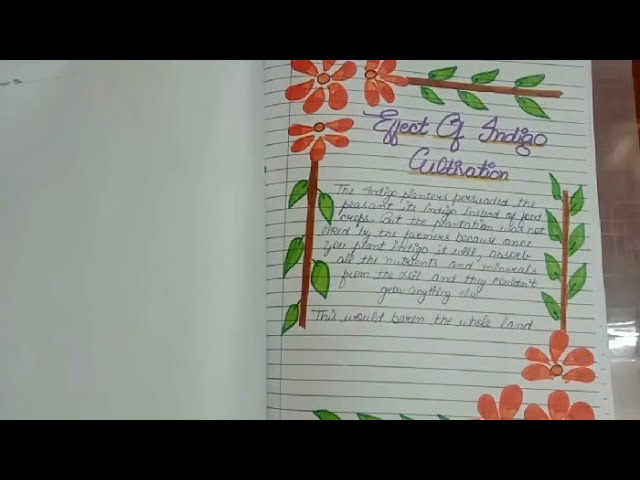 Effect Of Indigo
Cultivation
The Indigo planters persuaded the
peasant its Indigo instead of food
crops. But the plantation was not
liked by the farmers because once
you plant Indigo it will, absorb
all the nutrients and minerals
from the soil and they couldn't
grow anything else
This would baren the whole land